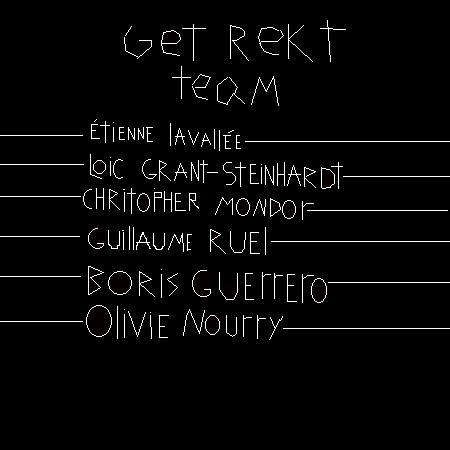 Get Rekt
team
Étienne lavallée
Loic GRANt-SteINHARDt
CHRitoPHER MONDor
GUillAUME RUEl
BORiS GUErrErO
OliviE NOUrry